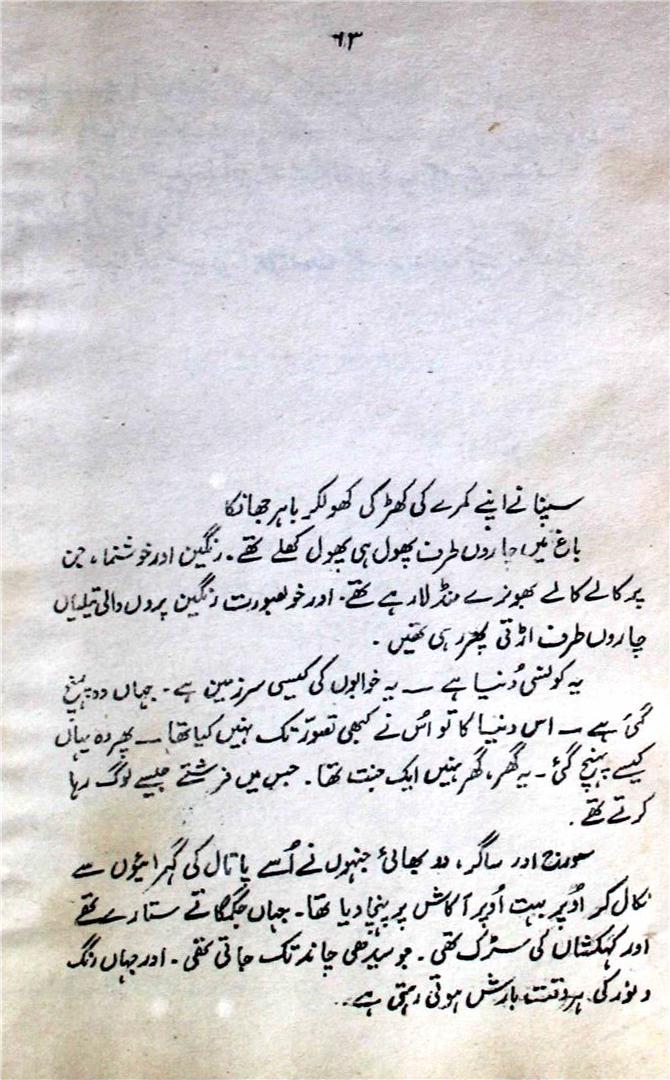 ۶۳
سپنا نے اپنے کمرے کی کھڑکی کھولکر باہر جھانکا
باغ میں چاروں طرف پھول ہی پھول کھلے تھے۔ رنگین اور خوشنما، جن
پر کالے کالے بھونرے منڈلا رہے تھے۔ اور خوبصورت رنگین پروں والی تتلیاں
چاروں طرف اڑتی پھر رہی تھیں۔
یہ کونسی دُنیا ہے ــ یہ خوابوں کی کیسی سرزمین ہے۔ جہاں وہ پہنچ
گئی ہے ــ اس دنیا کا تو اُس نے کبھی تصوّر تک نہیں کیا تھا ــ پھر وہ یہاں
کیسے پہنچ گئی۔ یہ گھر، گھر نہیں ایک جنت تھا۔ جس میں فرشتے جیسے لوگ رہا
کرتے تھے۔
سورج اور ساگر، دو بھائی جنہوں نے اُسے پاتال کی گہرائیوں سے
نکال کر اُوپر بہت اُوپر آکاش پر پہنچا دیا تھا۔ جہاں جگمگاتے ستارے تھے
اور کہکشاں کی سڑک تھی۔ جو سیدھی چاند تک جاتی تھی۔ اور جہاں رنگ
و نور کی ہر وقت بارش ہوتی رہتی ہے۔